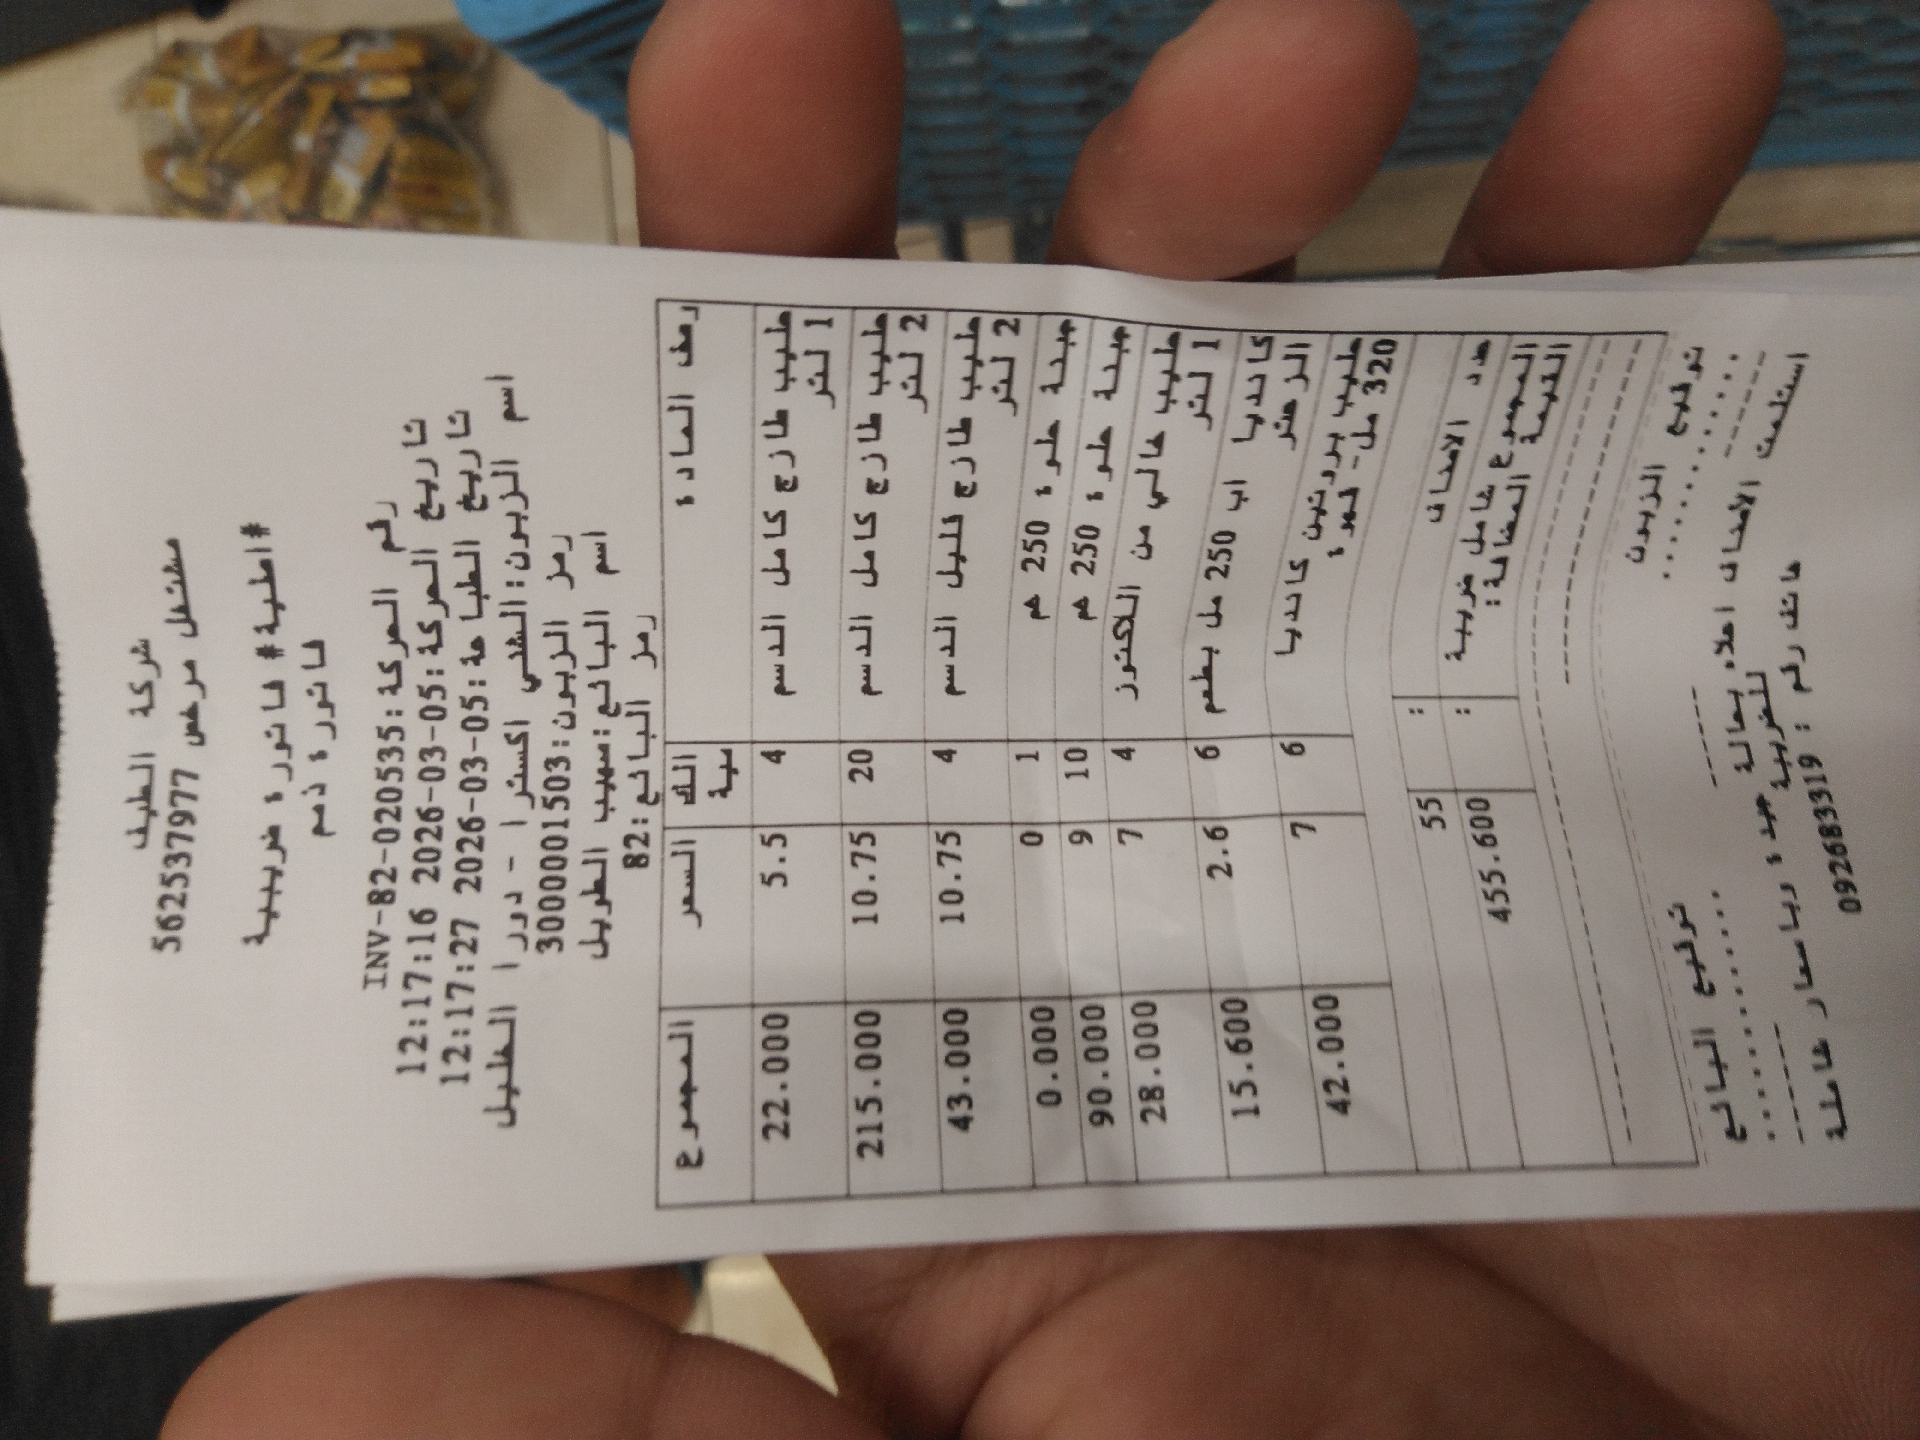 شركة الطيف
مشتغل مرخص 562537977
#اصلية# فاتورة ضريبية
فاتورة ذمم
رقم الحركة:INV-82-020535
تاريخ الحركة:2026-03-05 12:17:16
تاريخ الطباعة:2026-03-05 12:17:27
اسم الزبون:الشلي اكسترا - دورا الخليل
رمز الزبون:3000001503
اسم البائع:صهيب الطويل
رمز البائع:82
وصف المادة الكمية السعر المجموع
حليب طازج كامل الدسم 1 لتر 4 5.5 22.000
حليب طازج كامل الدسم 2 لتر 20 10.75 215.000
حليب طازج قليل الدسم 2 لتر 4 10.75 43.000
جبنة حلوة 250 غم 1 0 0.000
جبنة حلوة 250 غم 10 9 90.000
حليب خالي من اللاكتوز 1 لتر 4 7 28.000
كانديا اب 250 مل بطعم الزعتر 6 2.6 15.600
حليب بروتين كانديا 320 مل- قهوة 6 7 42.000
عدد الاصناف : 55
المجموع شامل ضريبة القيمة المضافة: : 455.600
توقيع الزبون توقيع البائع
استلمت الاصناف اعلاه بحالة جيدة وباسعار شاملة للضريبة
هاتف رقم : 0926833319